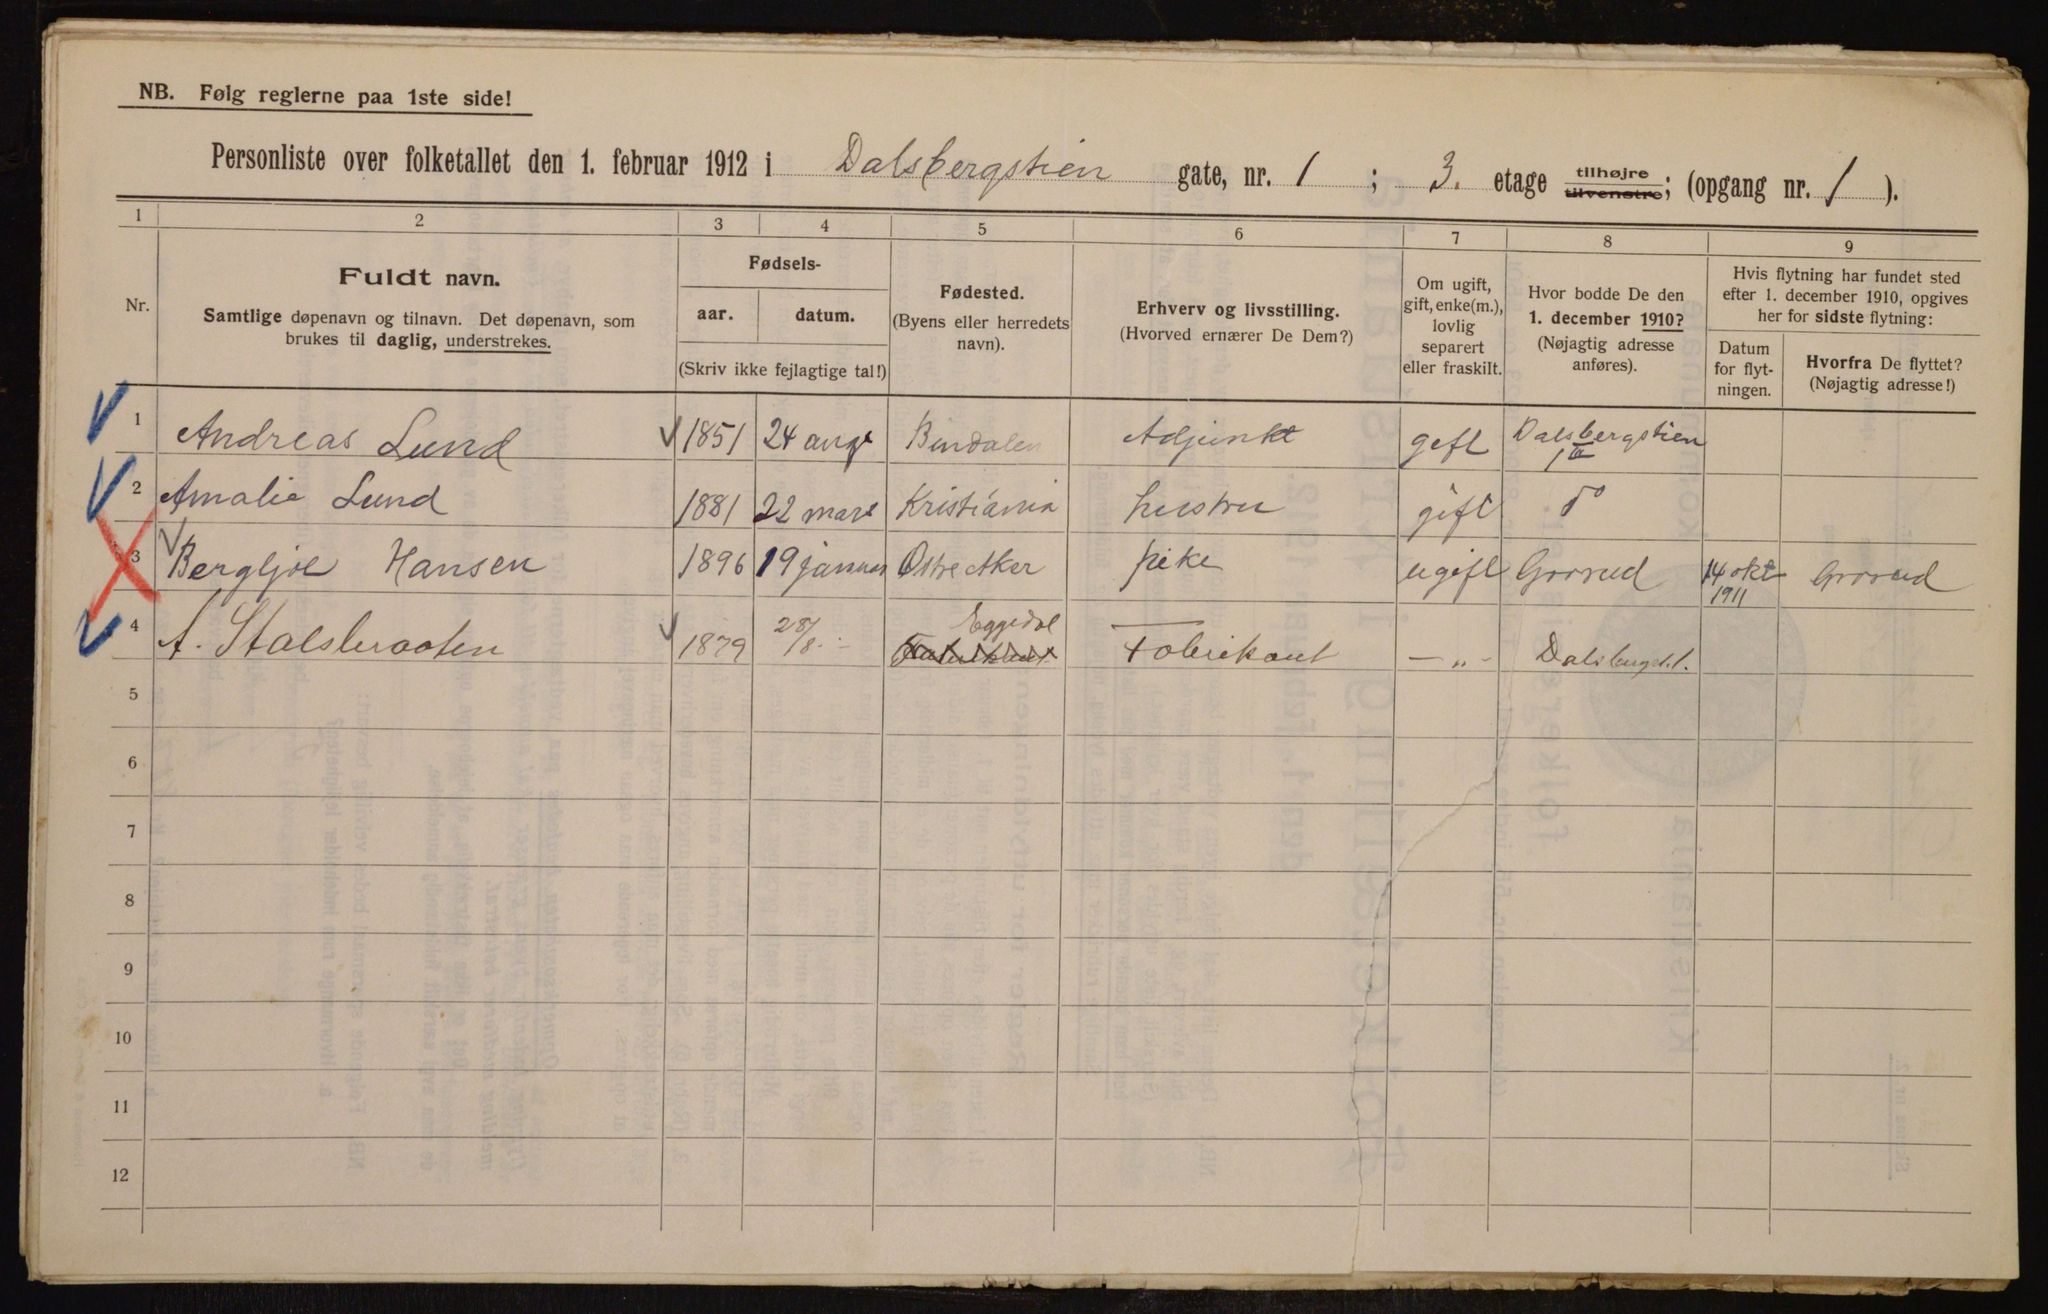 NB. Følg reglerne paa 1ste side!
Personliste over folketallet den 1. februar 1912 i Dalsbergstien gate, nr. 1 ; 3. etage tilhøjre tilvenstre; (opgang nr. 1 ).
1 2 3 4 5 6 7 8 9
Nr.
Fuldt navn.
Samtlige døpenavn og tilnavn. Det døpenavn, som
brukes til daglig, understrekes.
Fødsels-
aar. datum.
(Skriv ikke fejlagtige tal!)
Fødested.
(Byens eller herredets
navn).
Erhverv og livsstilling.
(Hvorved ernærer De Dem?)
Om ugift,
gift, enke(m.),
lovlig
separert
eller fraskilt.
Hvor bodde De den
1. december 1910?
(Nøjagtig adresse
anføres).
Hvis flytning har fundet sted
efter 1. december 1910, opgives
her for sidste flytning:
Datum
for flyt-
ningen.
Hvorfra De flyttet?
(Nøjagtig adresse!)
1 Andreas Lund 1851 24 aug Bindalen Adjunkt gift Dalsbergstien 1 III
2 Amalie Lund 1881 22 mars Kristiania hustru gift do
3 Bergljot Hansen 1896 19 januar Østre Aker pike ugift Grorud 14 okt 1911 Grorud
4 A. Stalsbraaten 1879 28/8 Eggedal Fabrikant — „ — Dalsbergst. 1.
5
6
7
8
9
10
11
12